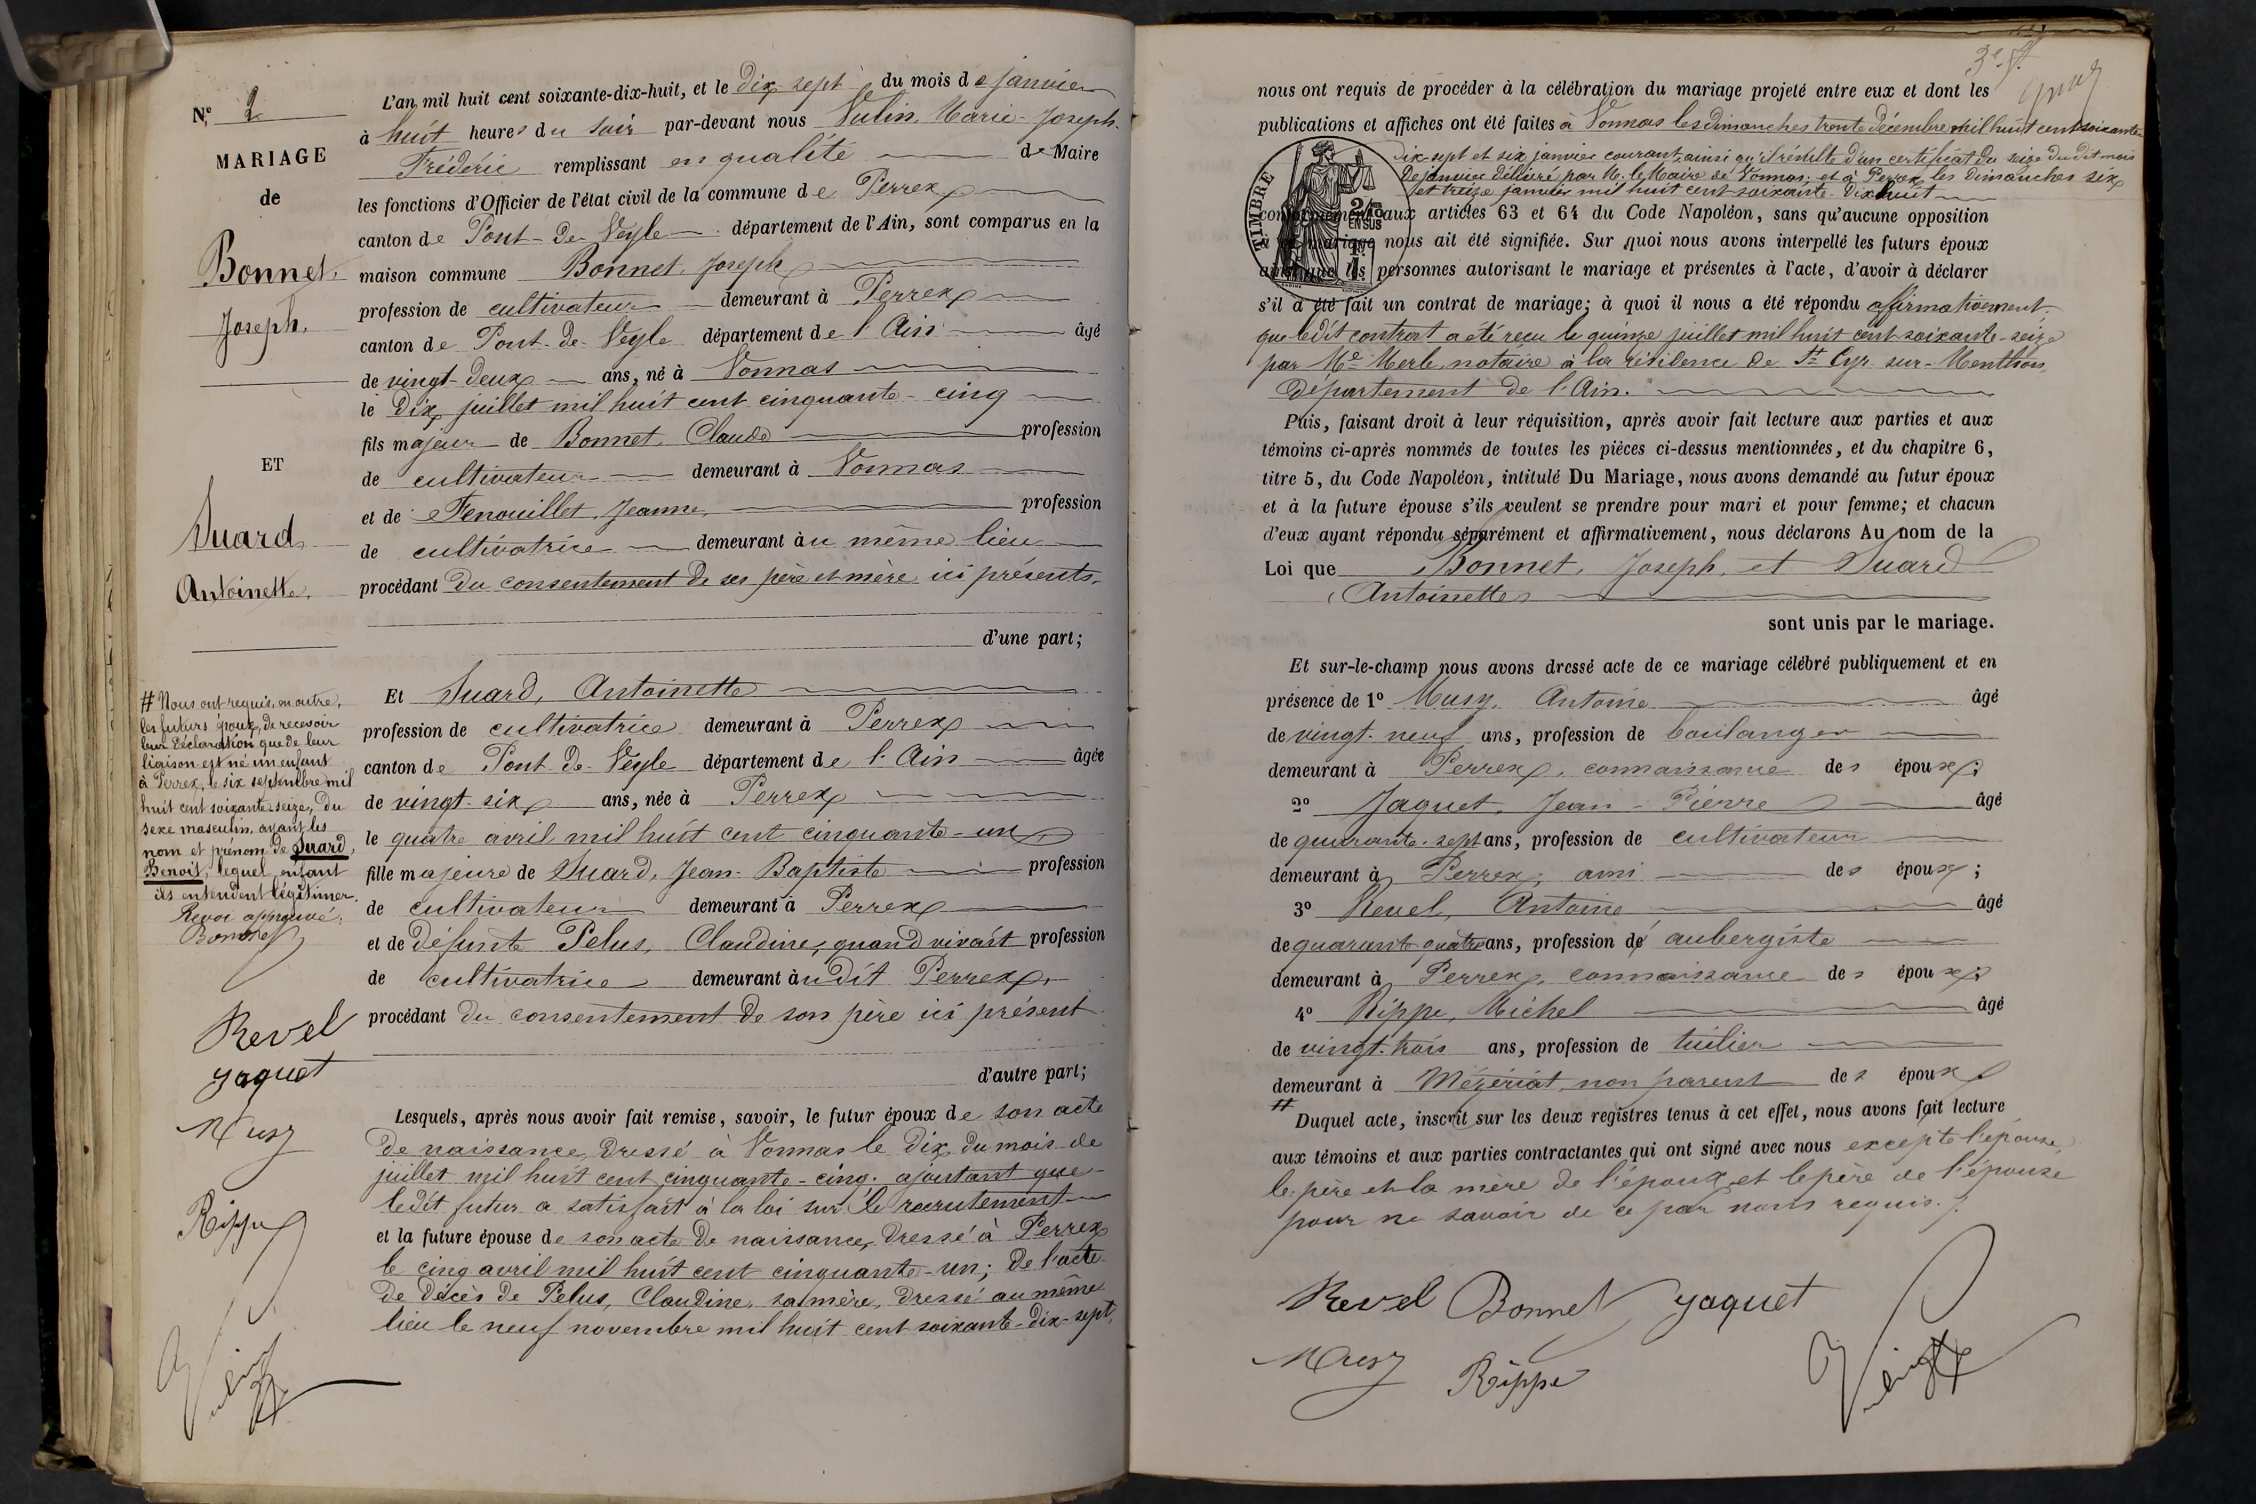 N° 2
MARIAGE
de
Bonnet,
Joseph,
ET
Suard
Antoinette,
# Nous ont requis, en outre,
les futurs époux, de recevoir
leur déclaration que de leur
liaison est né un enfant
à Perrex, le six septembre mil
huit cent soixante-seize, du
sexe masculin, ayant les
nom et prénom de Suard,
Benoit, lequel enfant
ils entendent légitimer.
Renvoi approuvé,
Bonnet
Revel
Jaquet
Musy
Rippe
L'an mil huit cent soixante-dix-huit, et le dix-sept du mois de janvier
à huit heures du soir par-devant nous Vulin, Marie-Joseph-
Frédéric remplissant en qualité de Maire
les fonctions d'Officier de l'état civil de la commune de Perrex
canton de Pont-de-Veyle département de l'Ain, sont comparus en la
maison commune Bonnet, Joseph
profession de cultivateur demeurant à Perrex
canton de Pont-de-Veyle département de l'Ain âgé
de vingt-deux ans, né à Vonnas
le dix juillet mil huit cent cinquante-cinq
fils majeur de Bonnet, Claude profession
de cultivateur demeurant à Vonnas
et de Fenouillet, Jeanne, profession
de cultivatrice demeurant au même lieu
procédant du consentement de ses père et mère ici présents,
d'une part;
Et Suard, Antoinette
profession de cultivatrice demeurant à Perrex
canton de Pont-de-Veyle département de l'Ain âgée
de vingt-six ans, née à Perrex
le quatre avril mil huit cent cinquante-un
fille majeure de Suard, Jean-Baptiste profession
de cultivateur demeurant à Perrex
et de défunte Pelus, Claudine, quand vivait profession
de cultivatrice demeurant audit Perrex,
procédant du consentement de son père ici présent
d'autre part;
Lesquels, après nous avoir fait remise, savoir, le futur époux de son acte
de naissance, dressé à Vonnas le dix du mois de
juillet mil huit cent cinquante-cinq, ajoutant que
ledit futur a satisfait à la loi sur le recrutement
et la future épouse de son acte de naissance, dressé à Perrex
le cinq avril mil huit cent cinquante-un; de l'acte
de décès de Pelus, Claudine, sa mère, dressé au même
lieu le neuf novembre mil huit cent soixante-dix-sept,
3e f.
nous ont requis de procéder à la célébration du mariage projeté entre eux et dont les
publications et affiches ont été faites à Vonnas les dimanches trente décembre mil huit cent soixante
dix-sept et six janvier courant, ainsi qu'il résulte d'un certificat du seize du dit mois
de janvier délivré par M. le Maire de Vonnas; et à Perrex les dimanches six
et treize janvier mil huit cent soixante-dix-huit
TIMBRE
2/10 EN SUS
conformément aux articles 63 et 64 du Code Napoléon, sans qu'aucune opposition
mariage nous ait été signifiée. Sur quoi nous avons interpellé les futurs époux
ainsi que les personnes autorisant le mariage et présentes à l'acte, d'avoir à déclarer
s'il a été fait un contrat de mariage; à quoi il nous a été répondu affirmativement,
que ledit contrat a été reçu le quinze juillet mil huit cent soixante-seize
par Me Merle, notaire à la résidence de St Cyr-sur-Menthon,
département de l'Ain.
Puis, faisant droit à leur réquisition, après avoir fait lecture aux parties et aux
témoins ci-après nommés de toutes les pièces ci-dessus mentionnées, et du chapitre 6,
titre 5, du Code Napoléon, intitulé Du Mariage, nous avons demandé au futur époux
et à la future épouse s'ils veulent se prendre pour mari et pour femme; et chacun
d'eux ayant répondu séparément et affirmativement, nous déclarons Au nom de la
Loi que Bonnet, Joseph, et Suard
Antoinette
sont unis par le mariage.
Et sur-le-champ nous avons dressé acte de ce mariage célébré publiquement et en
présence de 1° Musy, Antoine âgé
de vingt-neuf ans, profession de boulanger
demeurant à Perrex, connaissance des époux;
2° Jaquet, Jean-Pierre âgé
de quarante-sept ans, profession de cultivateur
demeurant à Perrex, ami des époux;
3° Revel, Antoine âgé
de quarante quatre ans, profession de aubergiste
demeurant à Perrex, connaissance des époux;
4° Rippe, Michel âgé
de vingt-trois ans, profession de tuilier
demeurant à Mézériat, non parent des époux
# Duquel acte, inscrit sur les deux registres tenus à cet effet, nous avons fait lecture
aux témoins et aux parties contractantes qui ont signé avec nous excepté l'épouse,
le père et la mère de l'époux et le père de l'épouse
pour ne savoir de ce par nous requis.
Revel Bonnet Jaquet
Musy Rippe